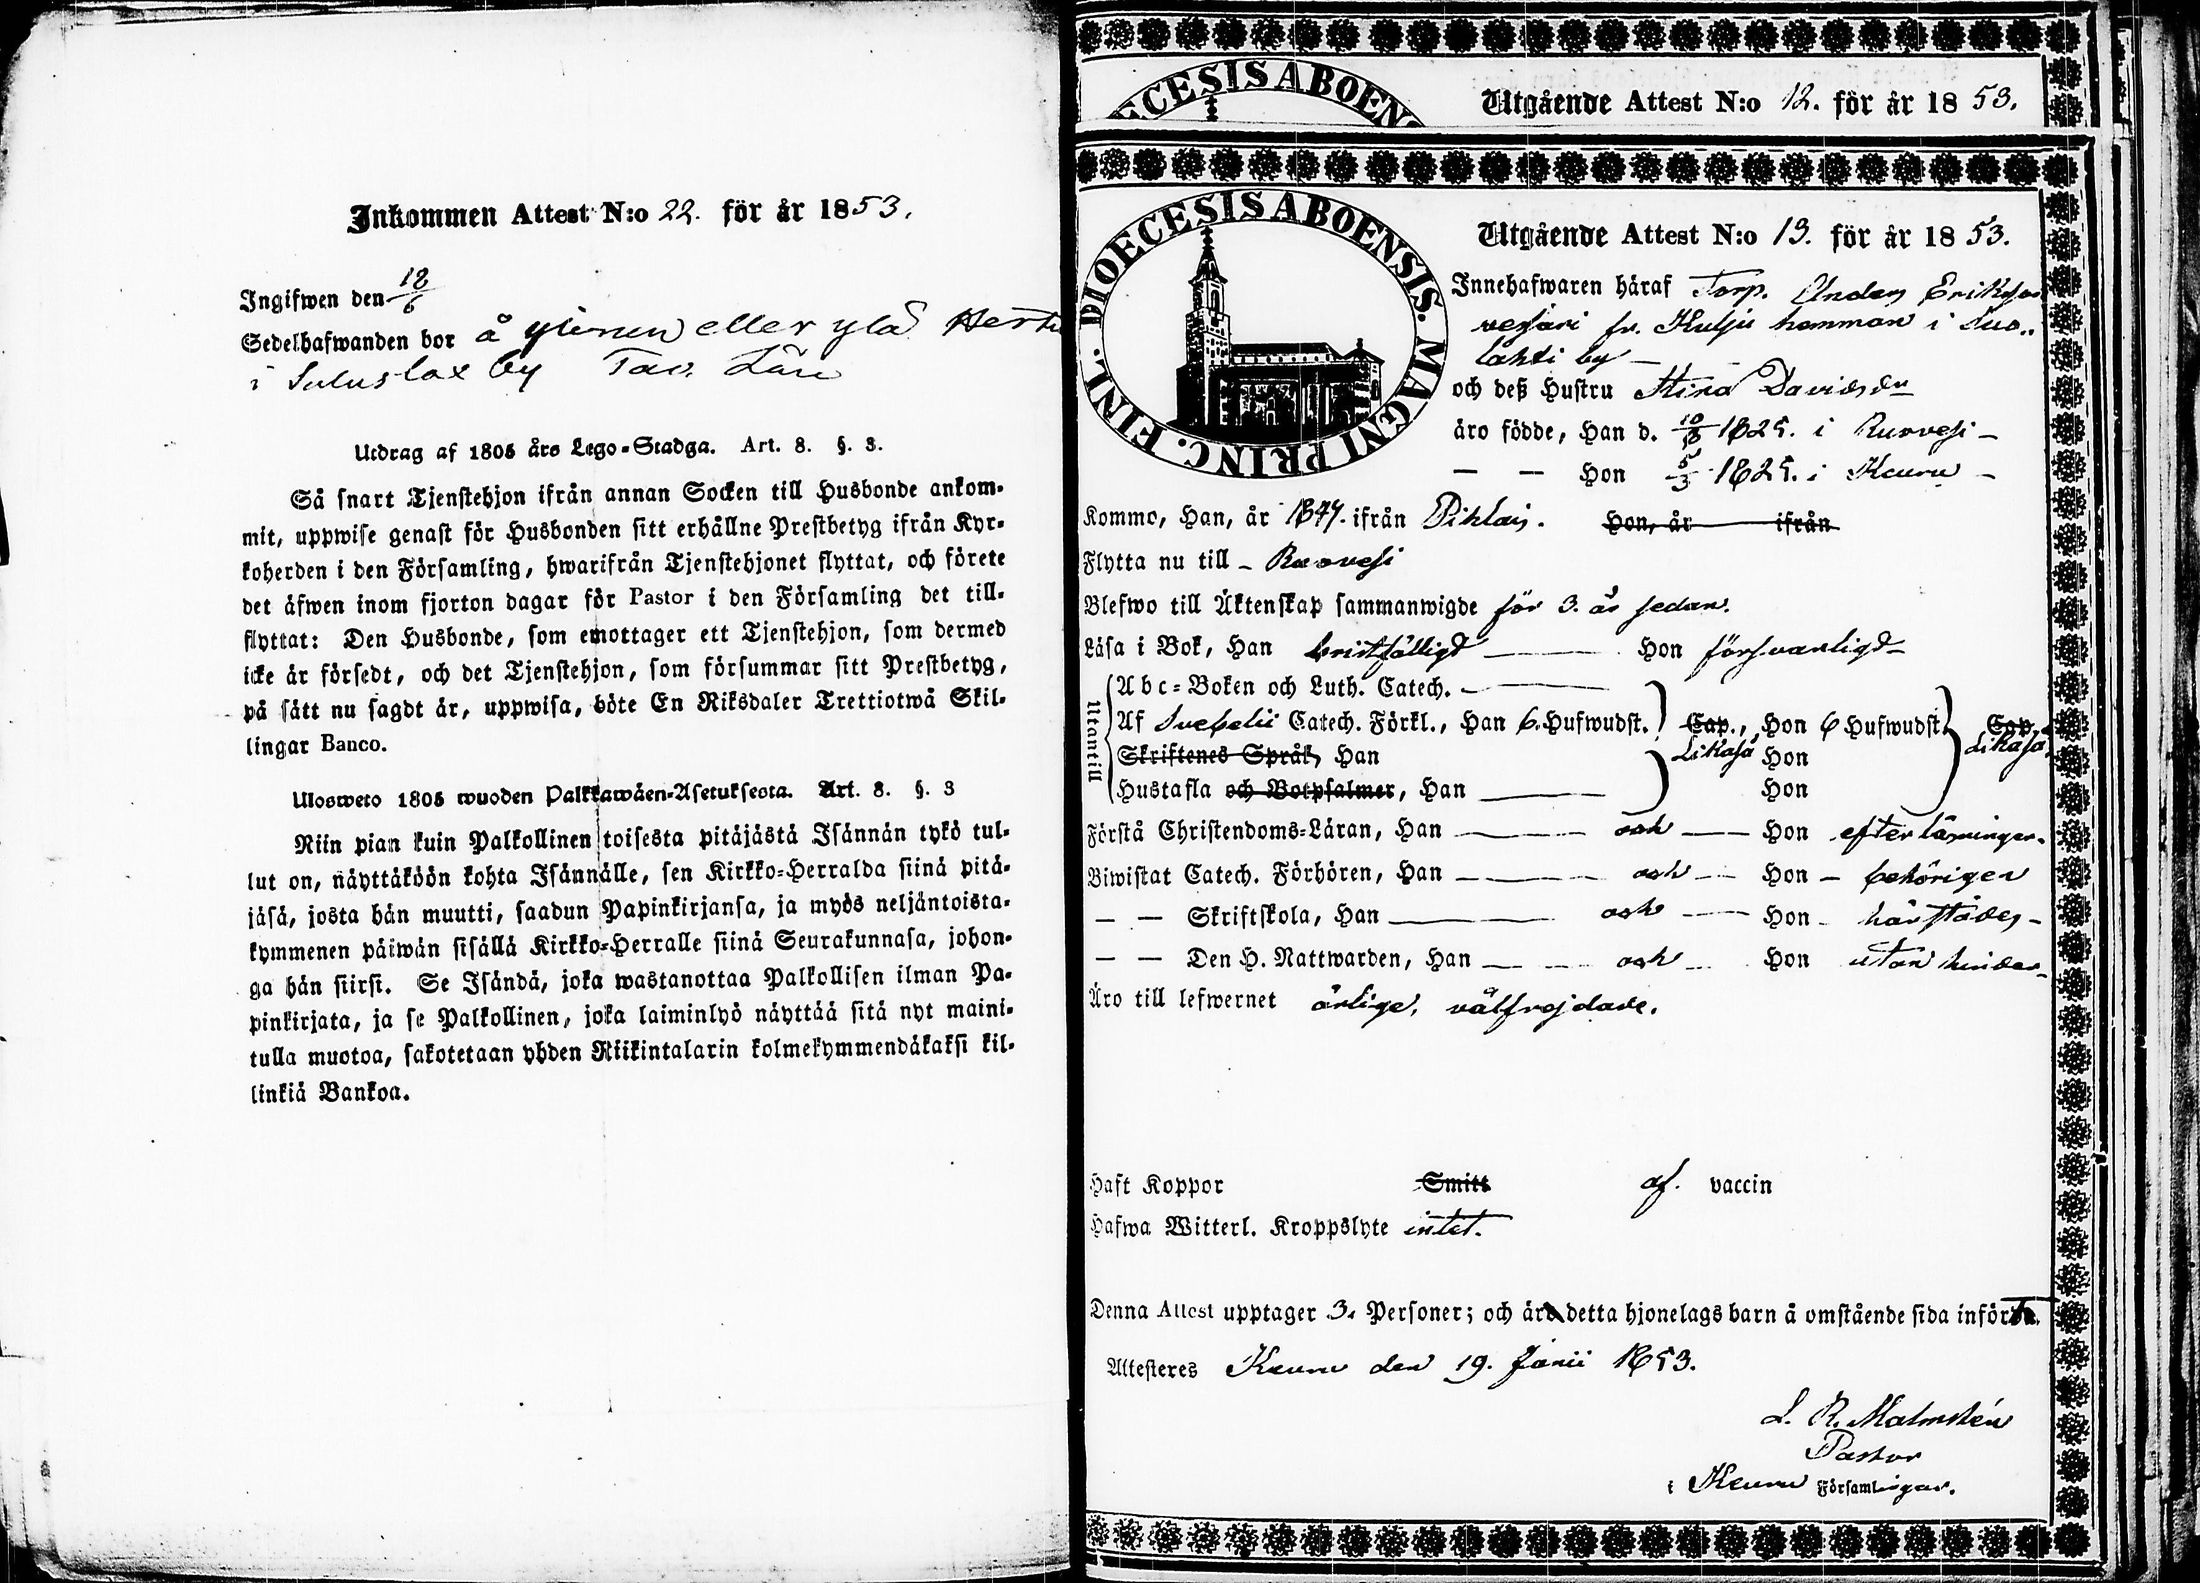 Inkommen Attest N:o 22. för år 1853.
Ingifwen den 18/6
Sedelhafwanden bor å eller ylä
i by
Utdrag af 1805 års Lego-Stadga. Art. 8. §. 3.
Så snart Tjenstehjon ifrån annan Socken till Husbonde ankom-
mit, uppwise genast för Husbonden sitt erhållne Prestbetyg ifrån Kyr-
koherden i den Församling, hwarifrån Tjenstehjonet flyttat, och förete
det äfwen inom fjorton dagar för Pastor i den Församling det till-
flyttat: Den Husbonde, som emottager ett Tjenstehjon, som dermed
icke är försedt, och det Tjenstehjon, som försummar sitt Prestbetyg,
på sätt nu sagdt är, uppwisa, böte En Riksdaler Trettiotwå Skil-
lingar Banco.
Ulosweto 1805 wuoden Palkkawäen-Asetuksesta. Art. 8. §. 3
Niin pian kuin Palkollinen toisesta pitäjästä Isännän tykö tul-
lut on, näyttäköön kohta Isännälle, sen Kirkko-Herralda siinä pitä-
jäsä, josta hän muutti, saadun Papinkirjansa, ja myös neljäntoista-
kymmenen päiwän sisällä Kirkko-Herralle siinä Seurakunnasa, johon-
ga hän siirsi. Se Isändä, joka wastanottaa Palkollisen ilman Pa-
pinkirjata, ja se Palkollinen, joka laiminlyö näyttää sitä nyt maini-
tulla muotoa, sakotetaan yhden Riikintalarin kolmekymmendäkaksi kil-
linkiä Bankoa.
ECESIS ABOENS
Utgående Attest N:o 12. för år 1853.
DIOECESIS ABOENSIS. MAGNI PRINC. FINL.
Utgående Attest N:o 13. för år 1853.
Innehafwaren häraf Torp. Anders Eriksson
fr. hemman i Suo-
lahti by
och deß Hustru Stina Davidsdr
äro födde, Han d. 1825. i Ruovesi
— — Hon 5/3 1825. i Keuru
Kommo, Han, år 1847. ifrån Pihlajs. Hon, år ifrån
Flytta nu till Ruovesi
Blefwo till Äktenskap sammanwigde för 3. år sedan.
Läsa i Bok, Han bristfälligt Hon försvarligt
Utantill
Abc-Boken och Luth. Catech.
Af Svebelii Catech. Förkl., Han 6. Hufwudst. Cap., Hon 6 Hufwudst. Cap.
Skriftenes Språk, Han Likaså Hon Likaså
Hustafla och Botpsalmer, Han Hon
Förstå Christendoms-Läran, Han och Hon efter läsningen
Biwistat Catech. Förhören, Han och Hon behörigen
— — Skriftskola, Han och Hon härstädes
— — Den H. Nattwarden, Han och Hon utan hinder
Äro till lefwernet ärlige, välfrejdade.
Haft Koppor Smitt af. vaccin
Hafwa Witterl. Kroppslyte intet.
Denna Attest upptager 3. Personer; och är detta hjonelags barn å omstående sida infördt.
Attesteres Keuru den 19. Junii 1853.
L. R. Malmstén
Pastor
i Keuru Församlingar.